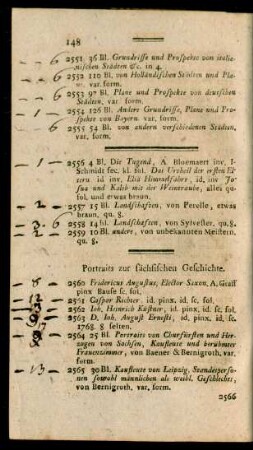 148
6 2551 36 Bl. Grundrisse und Prospekte von italie-
nischen Städten &c. in 4.
6 2552 110 Bl. von Holländischen Städten und Pla-
var. form.
6 2553 92 Bl. Plane und Prospekte von deutschen
Städten, var. form.
1 2554 126 Bl. Andere Grundrisse, Plans und Pro-
spekte von Bayern. var. form.
6 2555 54 Bl. von andern verschiedenen Städten,
var. form.
1 2556 4 Bl. Die Tugend, A. Bloemaert inv. J-
Schmidt fec. kl. fol. Das Urtheil der ersten El-
tern. id inv. Eliä Himmelfahrt, id. inv. Jo-
sua und Kaleb mit der Weintraube, alles qu.
fol. und etwas braun.
2 2557 15 Bl. Landschaften, von Perelle, etwas
braun. qu. 8.
3 6 2558 14 bl. Landschaften, von Sylvester, qu. 8.
2 2559 10 Bl. andere, von unbekannten Meistern,
qu. 8.
Portraits zur sächsischen Geschichte.
8 2560 Fridericus Augustus, Elector Saxon. A. Graff
pinx Bause sc. fol.
2561 Caspar Richter id. pinx. id. sc. fol.
2562 Joh. Heinrich Küstner, id. pinx. id. sc. fol.
2563 D. Joh. August Ernesti, id. pinx. id. sc.
1768. 8 selten.
2564 25 Bl. Portraits von Churfürsten und Her-
zogen von Sachsen, Kaufleute und berühmter
Frauenzimmer, von Baener & Bernigroth, var.
form.
13 2565 30 Bl. Kaufleute von Leipzig, Standesperso-
nen sowohl männlichen als weibl. Geschlechts,
von Bernigroth, var. form.
2566